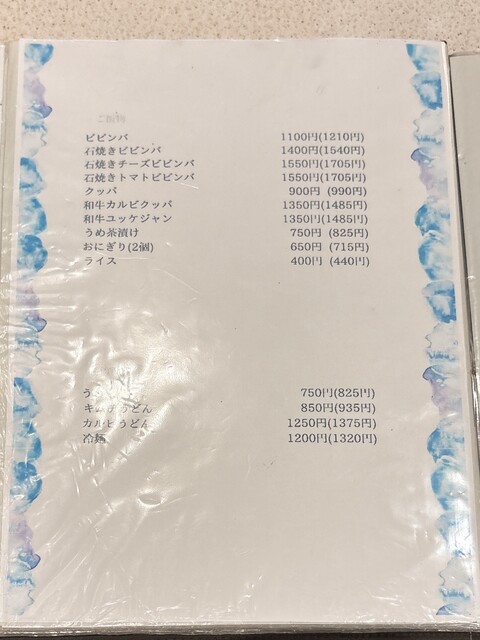 ご飯物
ビビンバ 1100円(1210円)
石焼きビビンバ 1400円(1540円)
石焼きチーズビビンバ 1550円(1705円)
石焼きトマトビビンバ 1550円(1705円)
クッパ 900円 (990円)
和牛カルビクッパ 1350円(1485円)
和牛ユッケジャン 1350円(1485円)
うめ茶漬け 750円 (825円)
おにぎり(2個) 650円 (715円)
ライス 400円 (440円)
750円(825円)
キムチうどん 850円(935円)
カルビうどん 1250円(1375円)
冷麺 1200円(1320円)